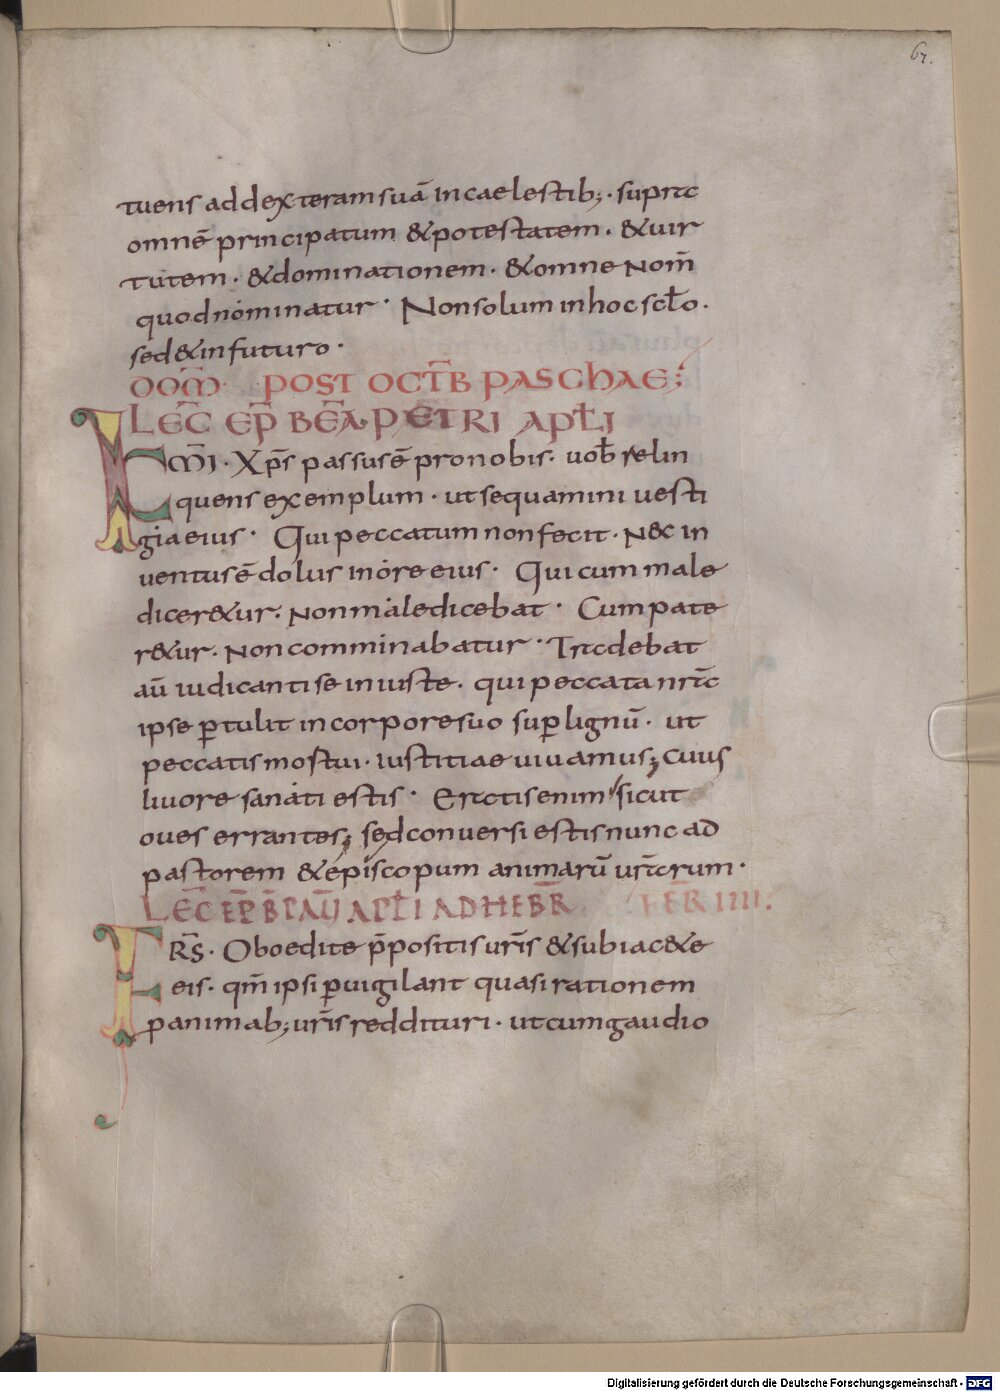 67.
tuens ad dexteram suā in caelestib;· supra
omnē principatum & potestatem· & uir
tutem· & dominationem· & omne nom̄
quod nominatur· Non solum in hoc sclo·
sed & in futuro·
DOM̄ POST OCTB̄ PASCHAE;
LEC̄ EP̄ BEĀ PETRI APLI
Kmi· Xps̄ passus ē pro nobis· uob̄ relin
quens exemplum· ut sequamini uesti
gia eius· Qui peccatum non fecit· Nec in
uentus ē dolus in ore eius· Qui cum male
diceretur: Non maledicebat· Cum pate
r&ur· Non comminabatur· Tradebat
aū iudicanti se iniuste· qui peccata nra
ipse ꝑtulit in corpore suo suꝑ lignū· ut
peccatis mostui· iustitiae uiuamus; Cuius
liuore sanati estis· Eratis enim sicut
oues errantes; sed conuersi estis nunc ad
pastorem & episcopum animarū urarum·
LEC̄ EP̄ B PAULI APLI AD HEBR̄ FER̄ IIII:
FRS̄· Oboedite p̄positis uris̄ & subiac&e
eis· qm̄ ipsi ꝑuigilant quasi rationem
p animab; uris̄ reddituri· ut cum gaudio
Digitalisierung gefördert durch die Deutsche Forschungsgemeinschaft - DFG